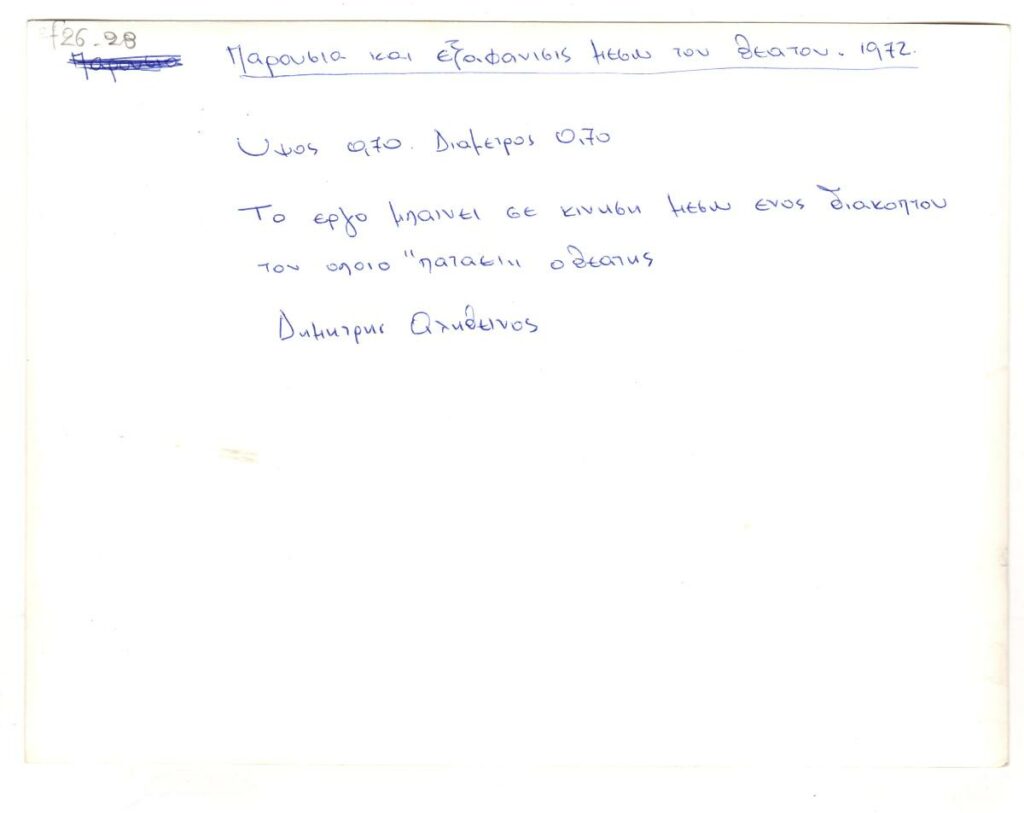 f26-28
Παρουσια
Παρουσια και εξαφανισις μεσω του θεατου. 1972.
Υψος 0,70. Διαμετρος 0,70
Το εργο μπαινει σε κινηση μεσω ενος διακοπτου
τον οποιο "παταει„ ο θεατης
Δημητρης Αληθεινος